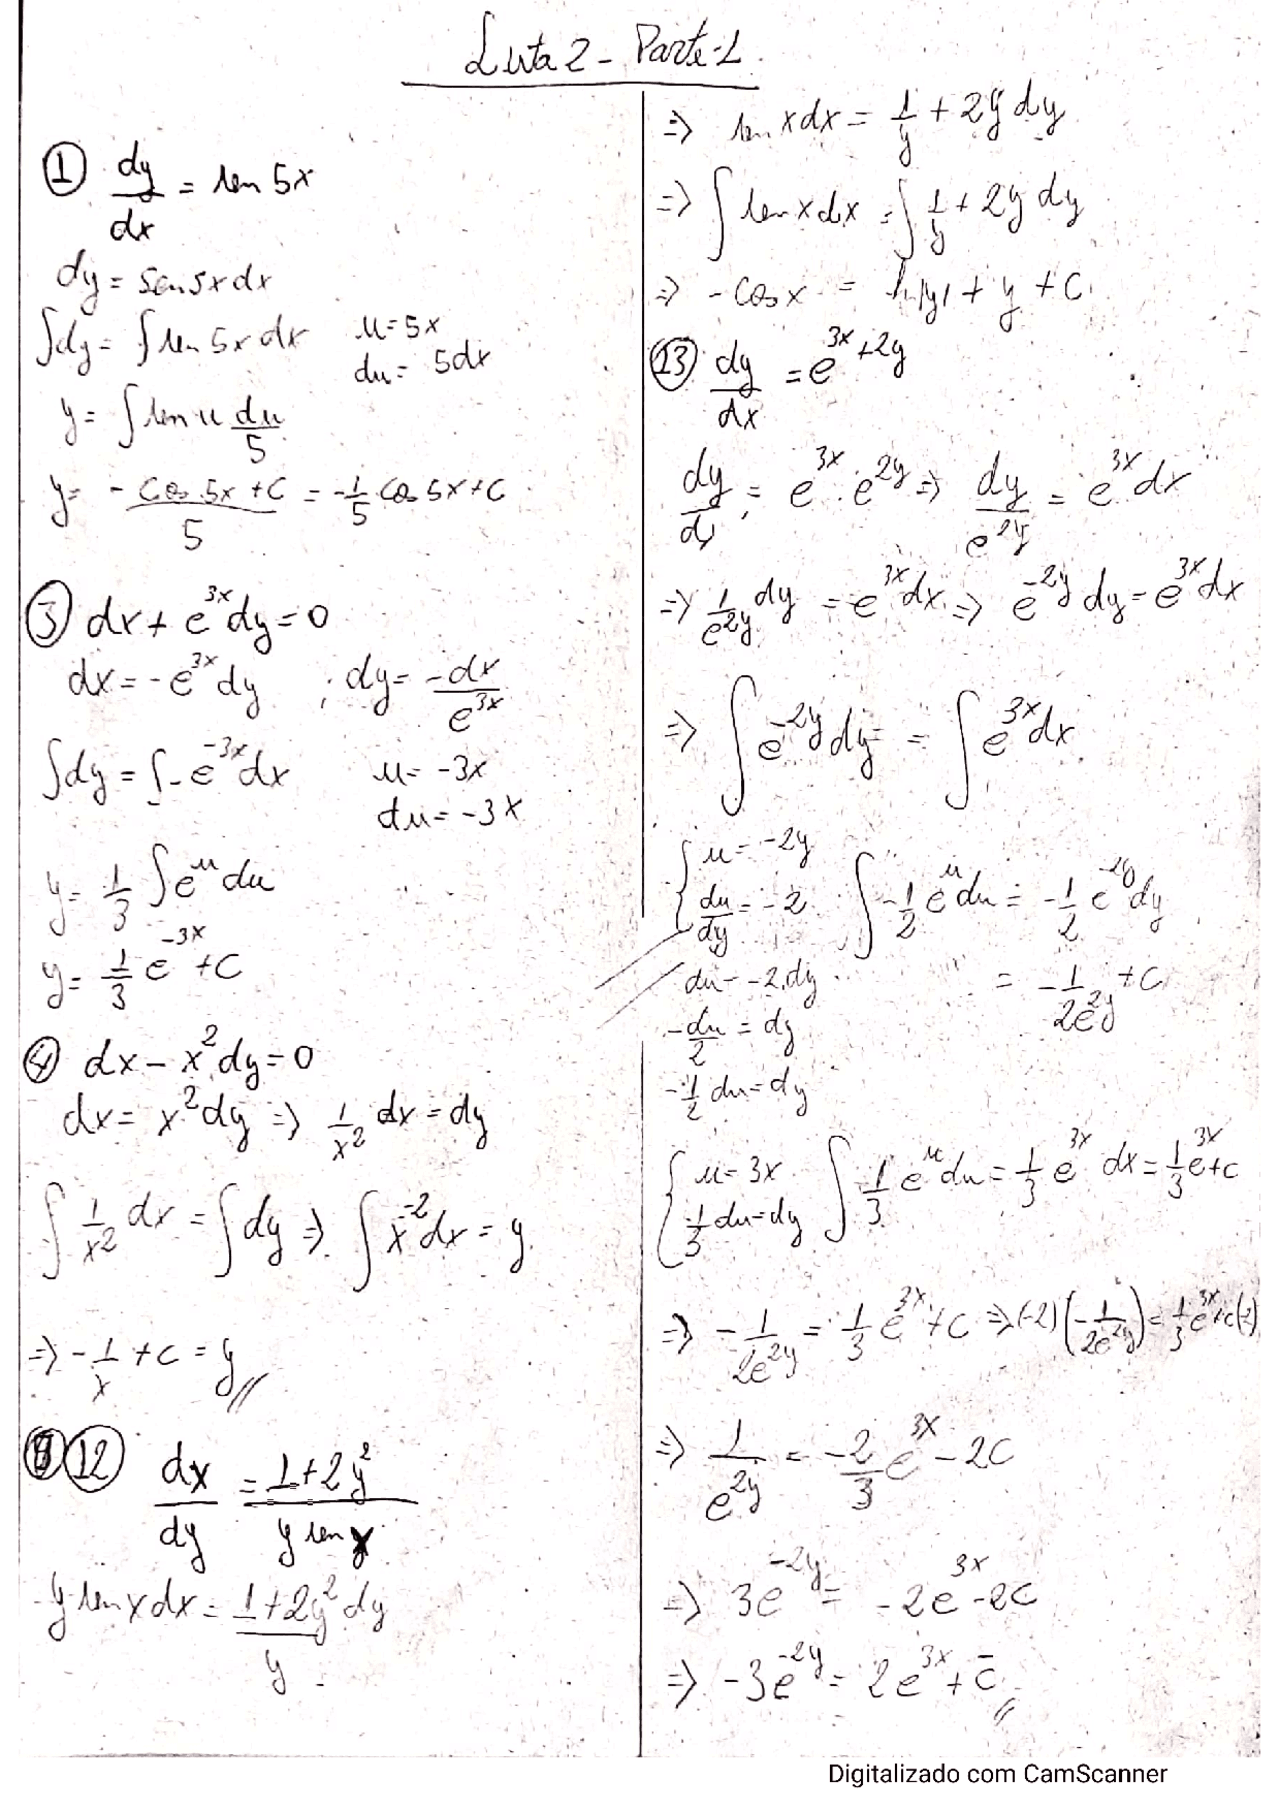 Lista 2 - Parte-1
① dy/dx = sen 5x
dy = sen 5x dx
∫dy = ∫ sen 5x dx   u = 5x
du = 5dx
y = ∫ sen u du/5
y = - cos 5x + C / 5 = -1/5 cos 5x + C
③ dx + e^3x dy = 0
dx = -e^3x dy ; dy = -dx/e^3x
∫dy = ∫-e^-3x dx   u = -3x
du = -3x
y = 1/3 ∫e^u du
y = 1/3 e^-3x + C
④ dx - x² dy = 0
dx = x² dy ⇒ 1/x² dx = dy
∫ 1/x² dx = ∫dy ⇒ ∫ x^-2 dx = y
⇒ -1/x + C = y //
⑫ dx/dy = 1+2y² / y sen x
y sen x dx = 1+2y² dy / y
⇒ sen x dx = 1/y + 2y dy
⇒ ∫ sen x dx = ∫ 1/y + 2y dy
⇒ -cos x = ln|y| + y + C
⑬ dy/dx = e^3x+2y
dy/dx = e^3x · e^2y ⇒ dy/e^2y = e^3x dx
⇒ 1/e^2y dy = e^3x dx ⇒ e^-2y dy = e^3x dx
⇒ ∫ e^-2y dy = ∫ e^3x dx
{ u = -2y
du/dy = -2   ∫ -1/2 e^u du = -1/2 e^-2y dy
du = -2 dy   = -1/2e^2y + C
-du/2 = dy
-1/2 du = dy
{ u = 3x   ∫ 1/3 e^u du = 1/3 e^3x dx = 1/3 e^3x + C
1/3 du = dy
⇒ -1/2e^2y = 1/3 e^3x + C ⇒ (-2)(-1/2e^2y) = 1/3 e^3x + C(-2)
⇒ 1/e^2y = -2/3 e^3x - 2C
⇒ 3e^-2y = -2e^3x - 2C
⇒ -3e^-2y = 2e^3x + C̄ //
Digitalizado com CamScanner